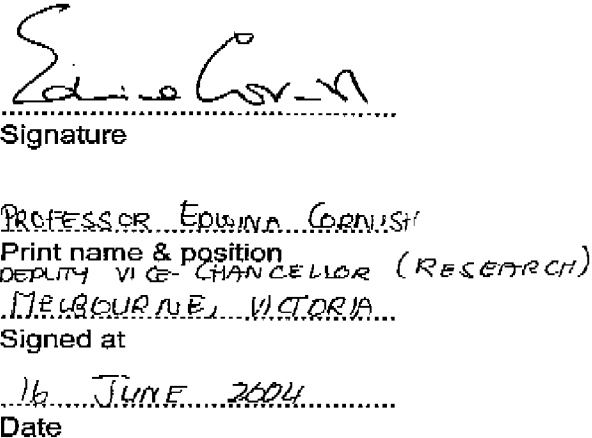 Edwina Cornish
Signature
PROFESSOR EDWINA CORNISH
Print name & position
DEPUTY VICE-CHANCELLOR (RESEARCH)
MELBOURNE, VICTORIA
Signed at
16 JUNE 2004
Date